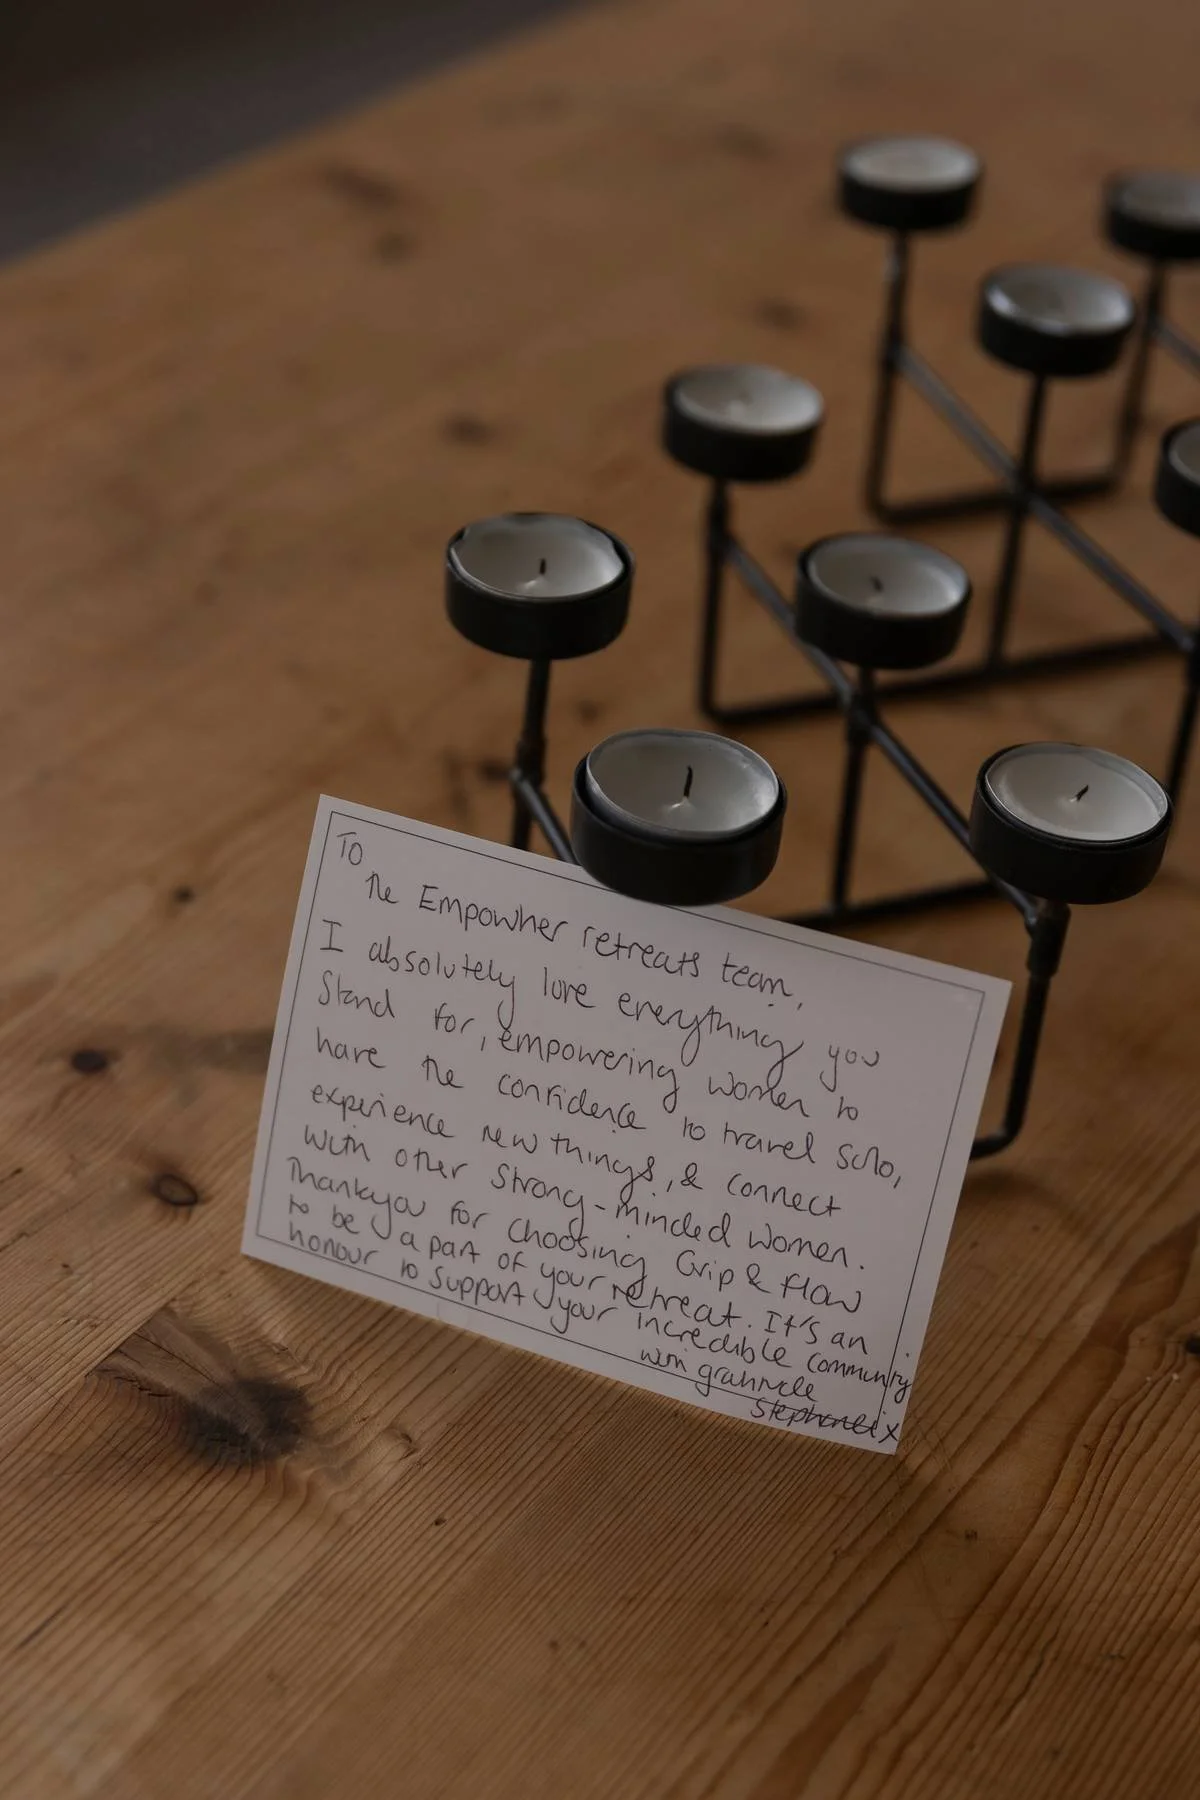 To
the Empowher retreats team,
I absolutely love everything you
Stand for, empowering women to
have the confidence to travel solo,
experience new things, & connect
with other strong-minded women.
Thankyou for choosing Grip & flow
to be a part of your retreat. It's an
honour to support your incredible community
with gratitude
Stephanie x